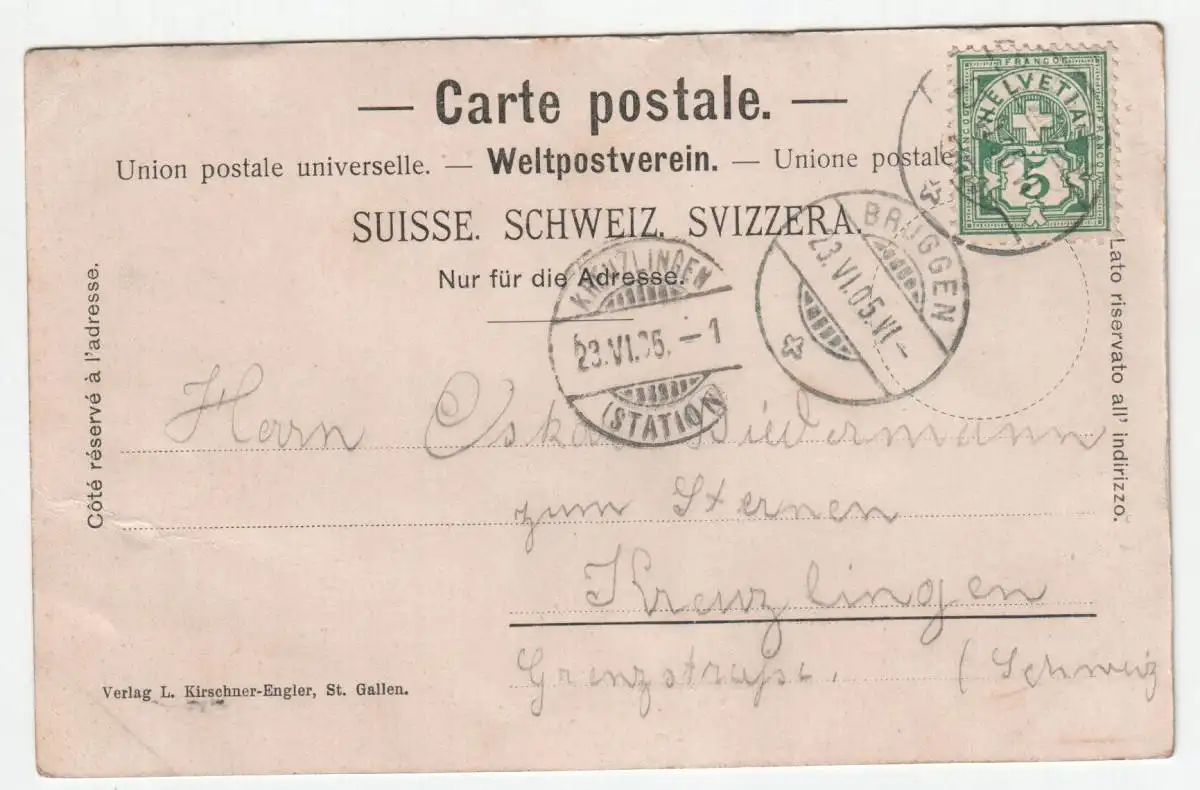 — Carte postale. —
FRANCO
HELVETIA
5
Union postale universelle. — Weltpostverein. — Unione postale
SUISSE. SCHWEIZ. SVIZZERA.
Nur für die Adresse.
BRUGGEN
23.VI.05.VI-
KREUZLINGEN
23.VI.05.-1
(STATION)
Côté réservé à l'adresse.
Lato riservato all' indirizzo.
Herrn Oskar Biedermann
zum Sternen
Kreuzlingen
Grenzstrasse. (Schweiz
Verlag L. Kirschner-Engler, St. Gallen.